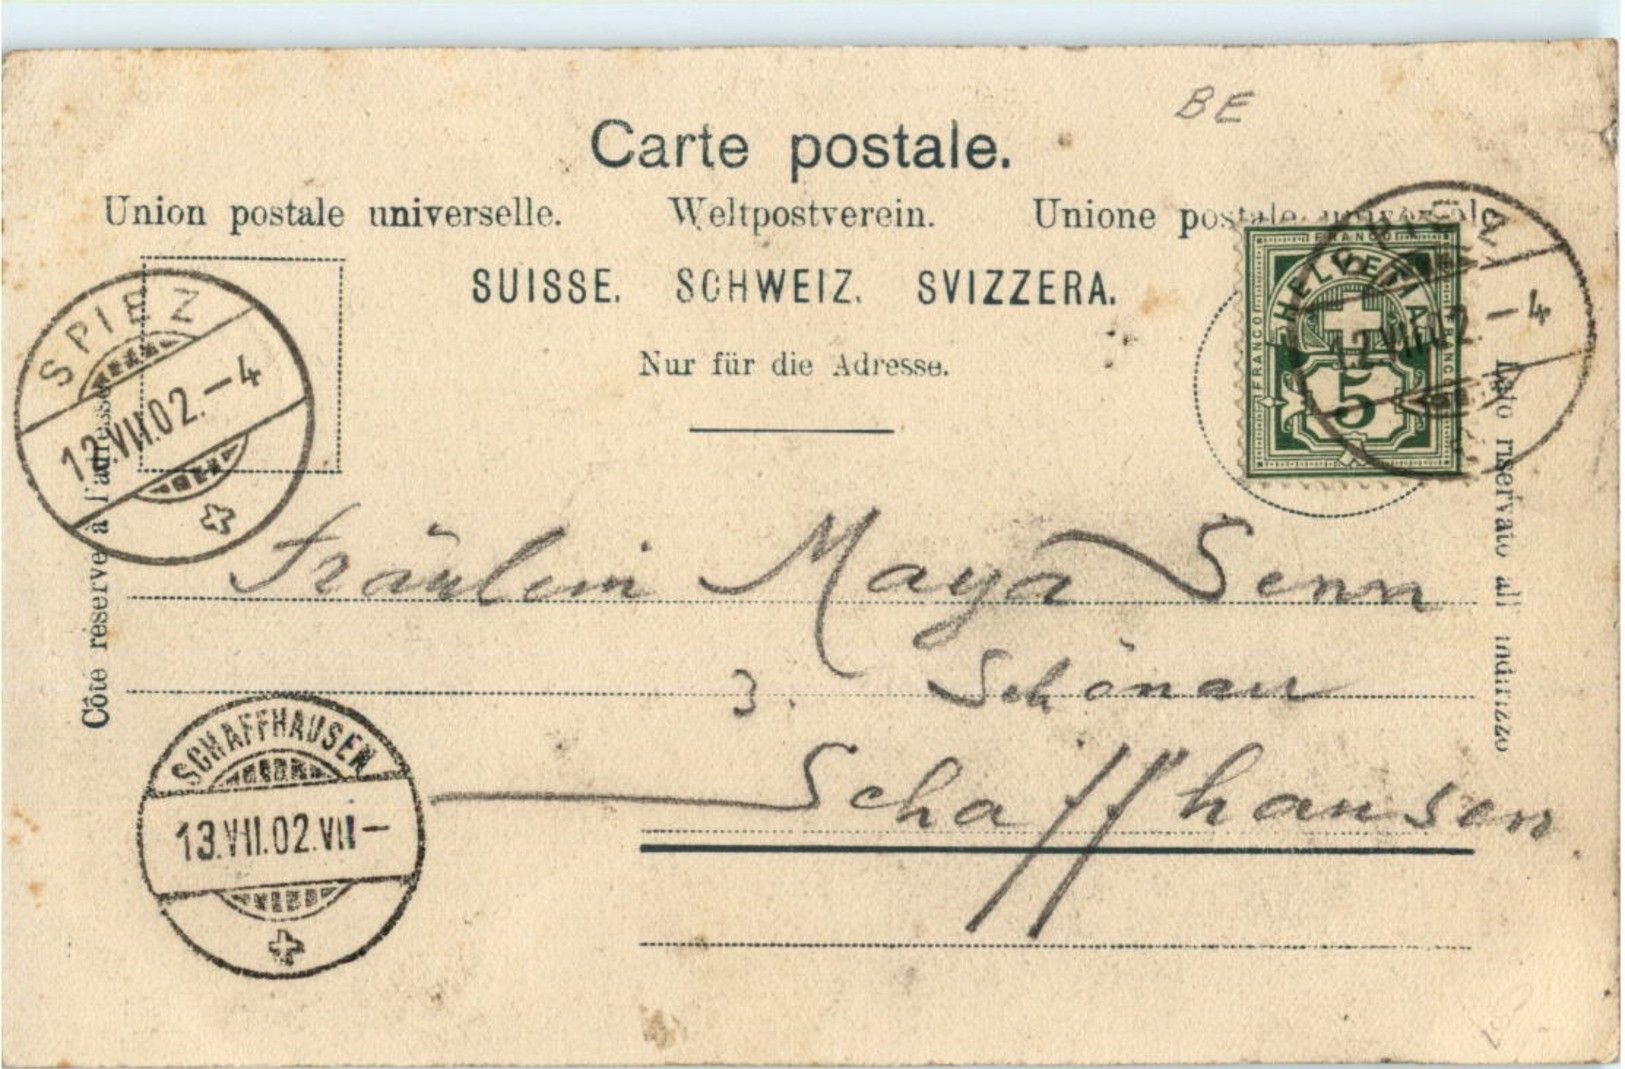 BE
Carte postale.
Union postale universelle. Weltpostverein. Unione postale universale
SUISSE. SCHWEIZ. SVIZZERA.
Nur für die Adresse.
SPIEZ
12.VII.02.–4
FRANCO
HELVETIA
FRANCO
FRANCO
5
SPIEZ
12.VII.02.–4
Côté réservé à l'adresse
Lato riservato all' indirizzo
Fräulein Maya Senn
z. Schönau
Schaffhausen
SCHAFFHAUSEN
13.VII.02.VII–